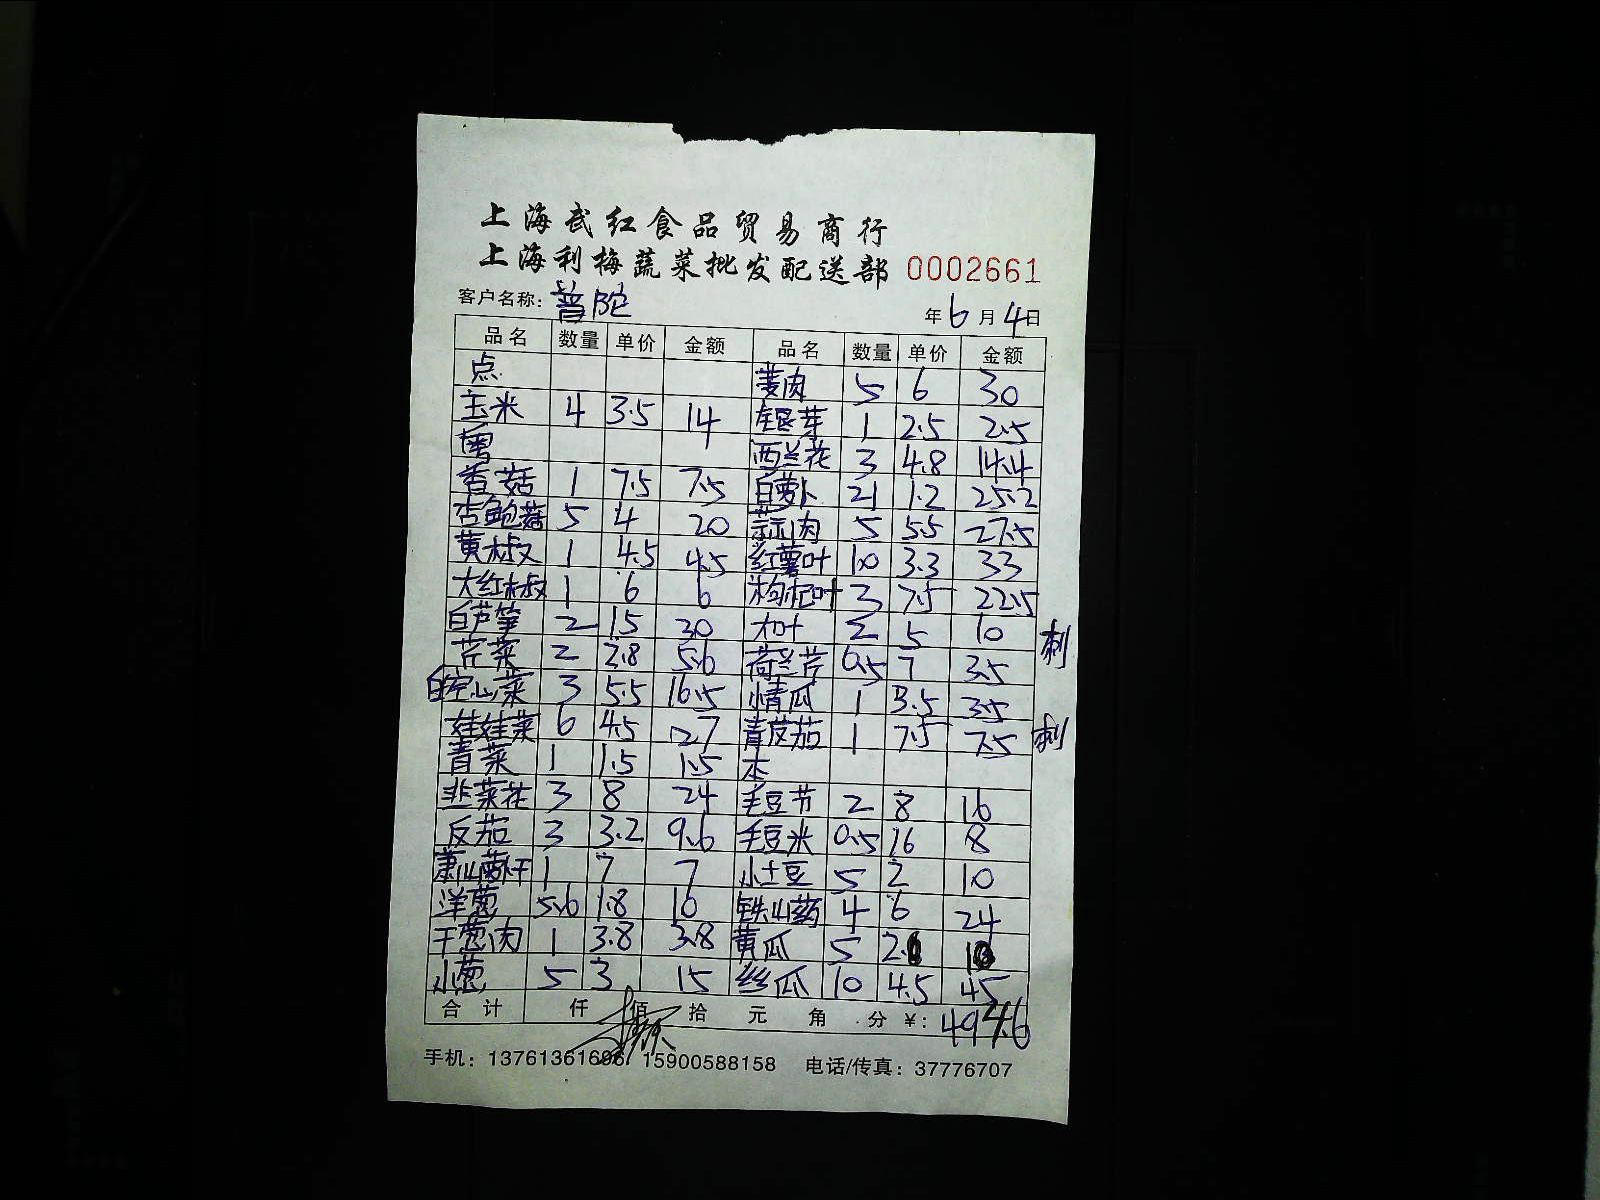 上海武红食品贸易商行
上海利梅蔬菜批发配送部 0002661
客户名称: 普陀 年6月4日
品名 数量 单价 金额 品名 数量 单价 金额
点 菱肉 5 6 30
玉米 4 3.5 14 银芽 1 2.5 2.5
粤 西兰花 3 4.8 14.4
香菇 1 7.5 7.5 白萝卜 21 1.2 25.2
杏鲍菇 5 4 20 蒜肉 5 5.5 27.5
黄椒 1 4.5 4.5 红薯叶 10 3.3 33
大红椒 1 6 6 枸杞叶 3 7.5 22.5
白芦笋 2 15 30 2 5 10 刺
芹菜 2 2.8 5.6 荷兰芹 0.5 7 3.5
白空心菜 3 5.5 16.5 小青瓜 1 3.5 3.5
娃娃菜 6 4.5 27 青茄 1 7.5 7.5 刺
青菜 1 1.5 1.5 本
韭菜花 3 8 24 毛豆节 2 8 16
反茄 3 3.2 9.6 毛豆米 0.5 16 8
1 7 7 小土豆 5 2 10
洋葱 5.6 1.8 10 铁山药 4 6 24
干葱肉 1 3.8 3.8 黄瓜 5
小葱 5 3 15 丝瓜 10 4.5 45
合计 仟 佰 拾 元 角 分 ¥: 494.6
手机: 13761361696 15900588158 电话/传真: 37776707